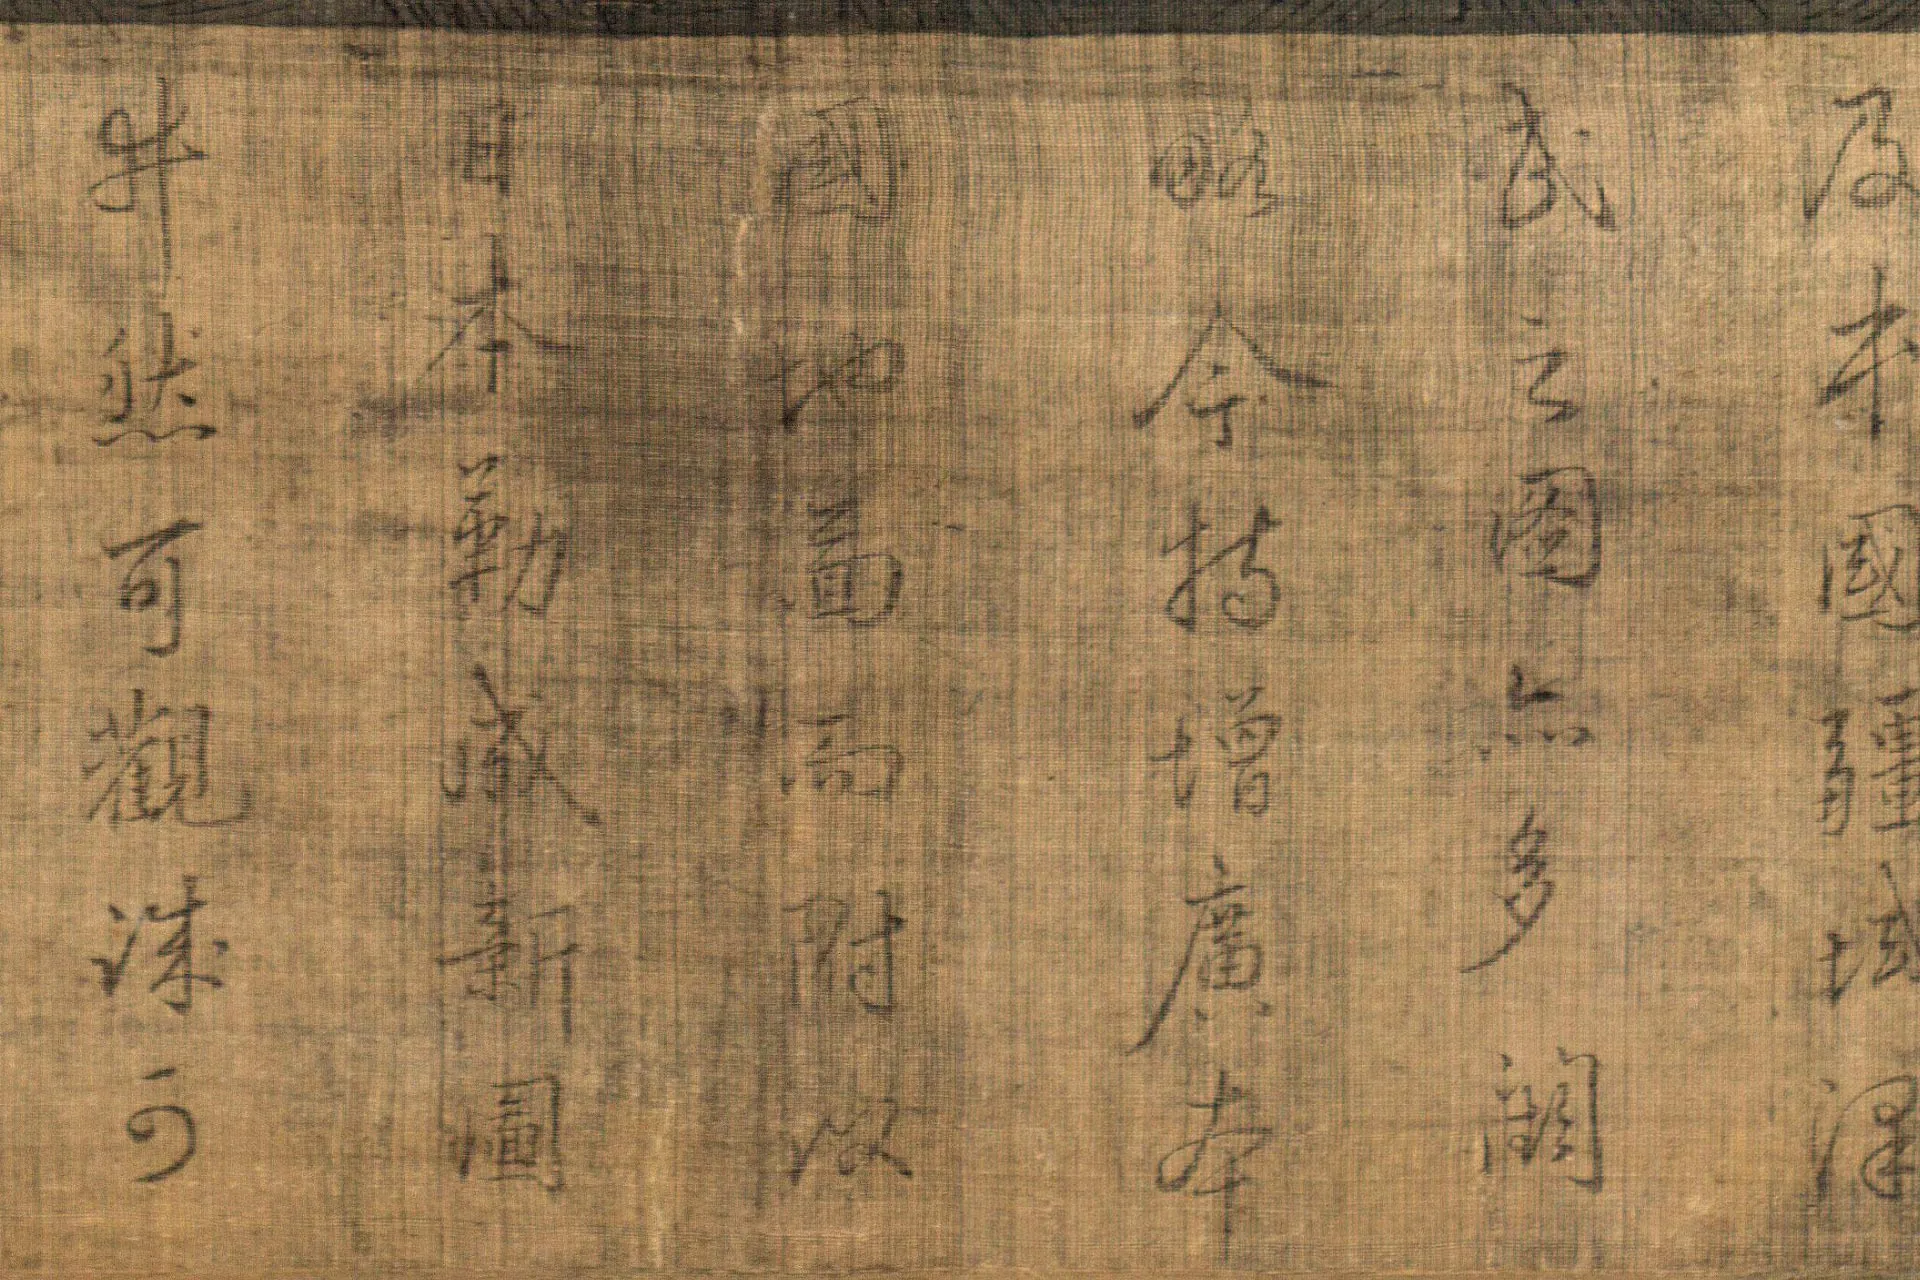 及本國疆域澤
民之圖亦多闕
略今特增廣本
國地圖而附以
日本勒成新圖
井然可觀誠可